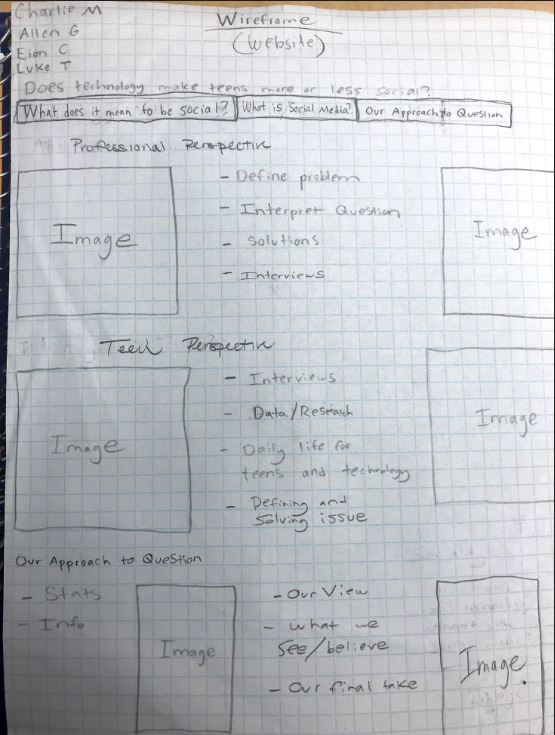 Charlie M
Allen G
Eion C
Luke T
Wireframe
(Website)
Does technology make teens more or less social?
What does it mean to be social? What is Social Media? Our Approach to Question
Professional Perspective
Image
- Define problem
- Interpret Question
- Solutions
- Interviews
Image
Teen Perspective
Image
- Interviews
- Data/Reseach
- Daily life for
teens and technology
- Defining and
Solving issue
Image
Our Approach to Question
- Stats
- Info
Image
- Our View
- What we
See/believe
- Our final take
Image